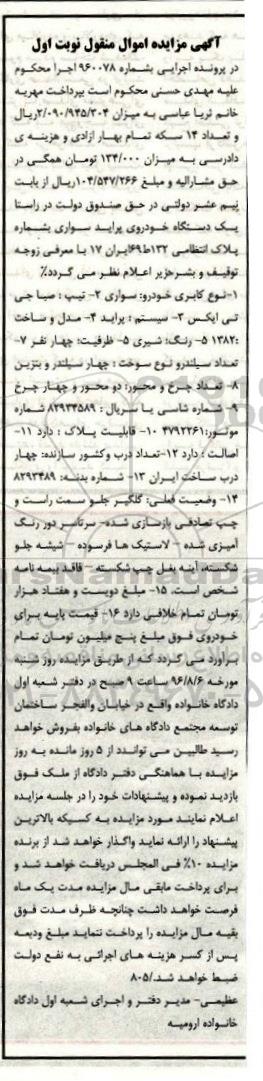 آگهی مزایده اموال منقول نوبت اول
در پرونده اجرایی بشماره ۹۶۰۰۷۸ اجرا محکوم
علیه مهدی حسنی محکوم است بپرداخت مهریه
خانم ثریا عباسی به میزان ۲/۰۹۰/۹۴۵/۳۰۴ریال
و تعداد ۱۴ سکه تمام بهار ازادی و هزینه ی
دادرسی به میزان ۱۳۴/۰۰۰ تومان همگی در
حق مشارالیه و مبلغ ۱۰۴/۵۴۷/۲۶۶ریال از بابت
نیم عشر دولتی در حق صندوق دولت در راستا
یک دستگاه خودروی پراید سواری بشماره
پلاک انتظامی ۱۳۲ط۶۹ایران ۱۷ با معرفی زوجه
توقیف و بشرحزیر اعلام نظر می گردد٪
۱-نوع کابری خودرو: سواری ۲- تیپ : صبا جی
تی ایکس ۳- سیستم : پراید ۴- مدل و ساخت
:۱۳۸۲ ۵- رنگ: شیری ۵- ظرفیت: چهار نفر ۷-
تعداد سیلندرو نوع سوخت : چهار سیلندر و بنزین
۸- تعداد چرخ و محور: دو محور و چهار چرخ
۹- شماره شاسی یا سریال : ۸۲۹۳۳۵۸۹ شماره
موتور:۴۷۹۲۲۶۱ ۱۰- قابلیت پلاک : دارد ۱۱-
اصالت : دارد ۱۲-تعداد درب وکشور سازنده: چهار
درب ساخت ایران ۱۳- شماره بدنه: ۸۲۹۳۴۸۹
۱۴- وضعیت فعلی: گلگیر جلو سمت راست و
چپ تصادفی بازسازی شده- سرتاسر دور رنگ
آمیزی شده – لاستیک ها فرسوده – شیشه جلو
شکسته، آینه بغل چپ شکسته – فاقد بیمه نامه
شخص است. ۱۵- مبلغ دویست و هفتاد هزار
تومان تمام خلافی دارد ۱۶- قیمت پایه برای
خودروی فوق مبلغ پنج میلیون تومان تمام
براورد می گردد که از طریق مزایده روز شنبه
مورخه ۹۶/۸/۶ ساعت ۹ صبح در دفتر شعبه اول
دادگاه خانواده واقع در خیابان والفجر ساختمان
توسعه مجتمع دادگاه های خانواده بفروش خواهد
رسید طالبین می تواندد از ۵ روز مانده به روز
مزایده با هماهنگی دفتر دادگاه از ملک فوق
بازدید نموده و پیشنهادات خود را در جلسه مزایده
اعلام نمایند مورد مزایده به کسیکه بالاترین
پیشنهاد را ارائه نماید واگذار خواهد شد از برنده
مزایده ۱۰٪ فی المجلس دریافت خواهد شد و
برای پرداخت مابقی مال مزایده مدت یک ماه
فرصت خواهد داشت چنانچه ظرف مدت فوق
بقیه مال مزایده را پرداخت ننماید مبلغ ودیعه
پس از کسر هزینه های اجرائی به نفع دولت
ضبط خواهد شد./۸۰۵
عظیمی- مدیر دفتر و اجرای شعبه اول دادگاه
خانواده ارومیه